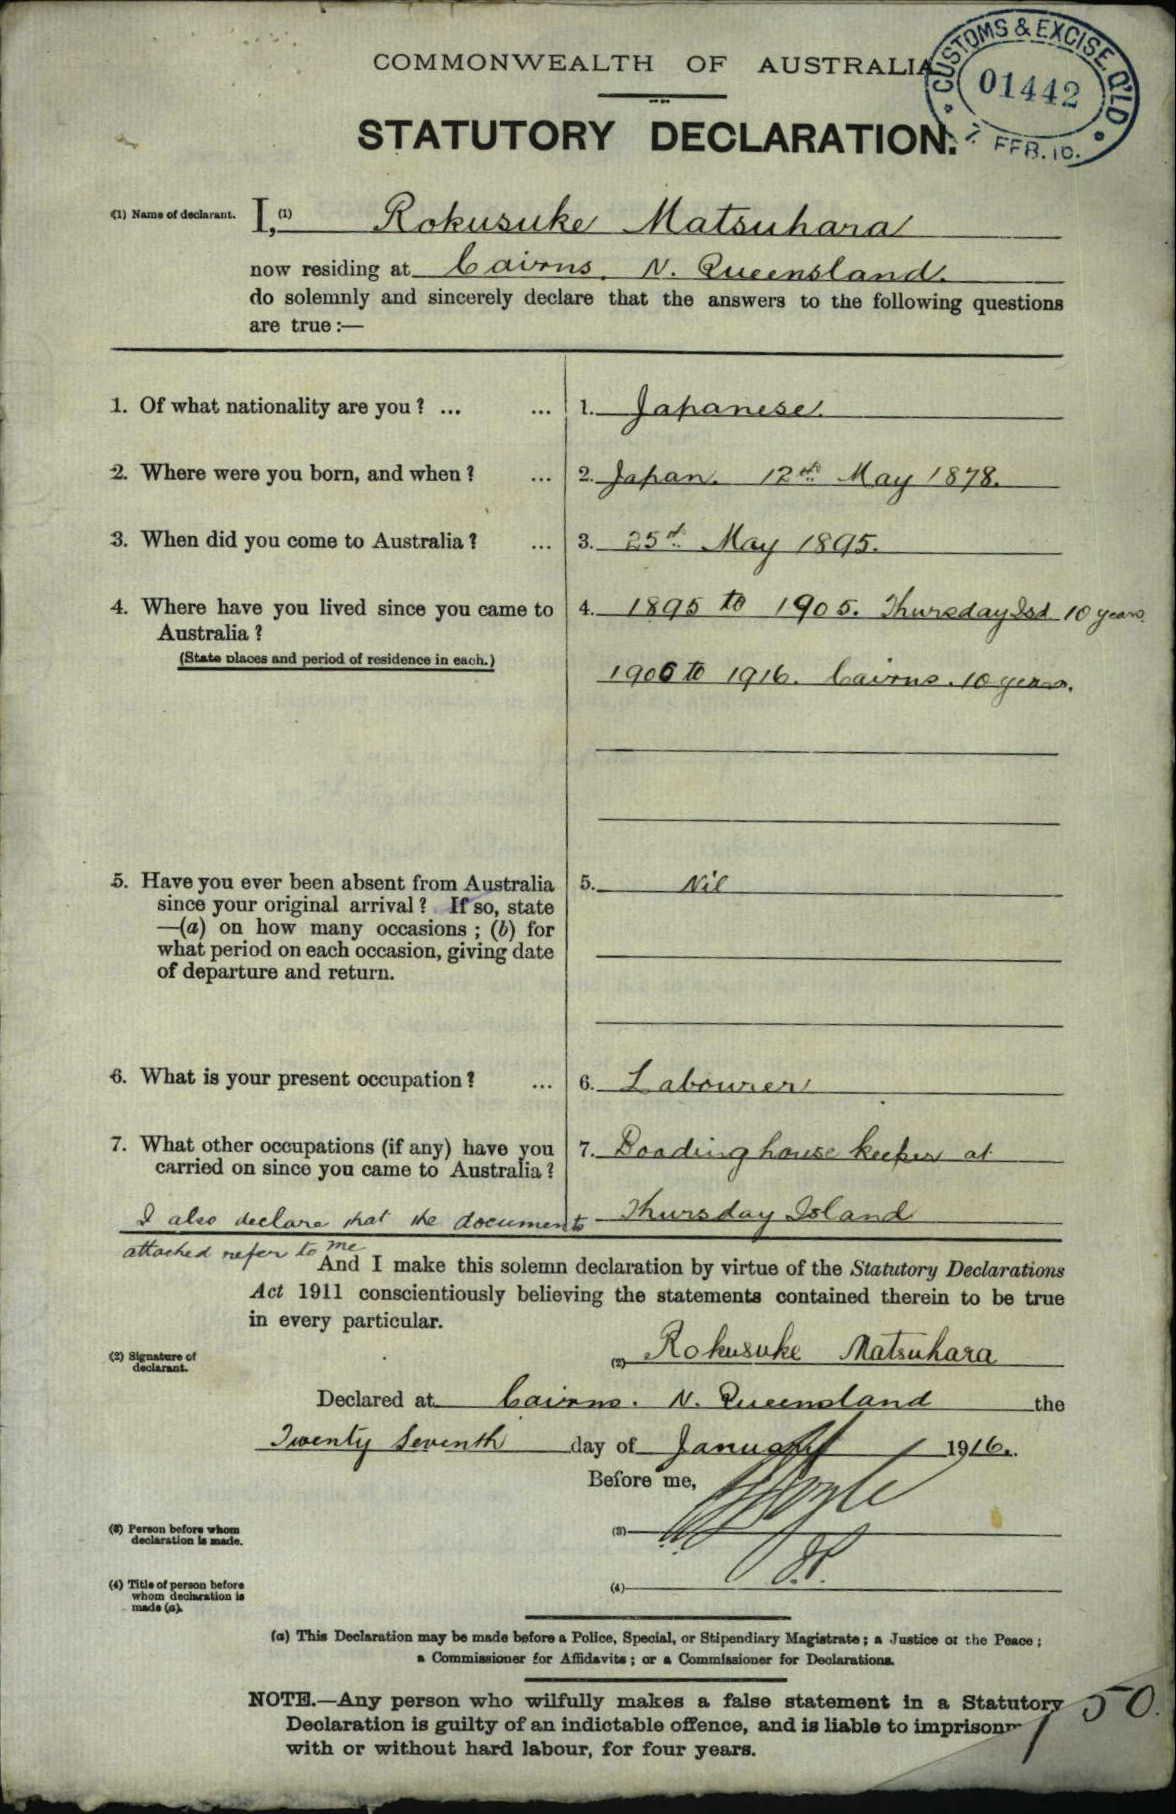 COMMONWEALTH OF AUSTRALIA
CUSTOMS & EXCISE Q'LD
01442
7 FEB. 16.
STATUTORY DECLARATION.
(1) Name of declarant. I, (1) Rokusuke Matsuhara
now residing at Cairns. N. Queensland.
do solemnly and sincerely declare that the answers to the following questions
are true :—
1. Of what nationality are you ? ... ... 1. Japanese.
2. Where were you born, and when ? ... 2. Japan. 12th May 1878.
3. When did you come to Australia ? ... 3. 25th May 1895.
4. Where have you lived since you came to 4. 1895 to 1905. Thursday Isd 10 years.
Australia ?
(State places and period of residence in each.)
1906 to 1916. Cairns. 10 years.
5. Have you ever been absent from Australia 5. Nil
since your original arrival ? If so, state
—(a) on how many occasions ; (b) for
what period on each occasion, giving date
of departure and return.
6. What is your present occupation ? ... 6. Labourer
7. What other occupations (if any) have you 7. Boading house keeper at
carried on since you came to Australia ?
Thursday Island
I also declare that the documents
attached refer to me
And I make this solemn declaration by virtue of the Statutory Declarations
Act 1911 conscientiously believing the statements contained therein to be true
in every particular.
(2) Signature of
declarant.
(2) Rokusuke Matsuhara
Declared at Cairns. N. Queensland the
Twenty Seventh day of January 1916.
Before me,
(3) Person before whom
declaration is made.
(3)
(4) Title of person before
whom declaration is
made (a).
(4) J.P.
(a) This Declaration may be made before a Police, Special, or Stipendiary Magistrate ; a Justice of the Peace ;
a Commissioner for Affidavits ; or a Commissioner for Declarations.
NOTE.—Any person who wilfully makes a false statement in a Statutory
Declaration is guilty of an indictable offence, and is liable to imprisonm
with or without hard labour, for four years.
150.